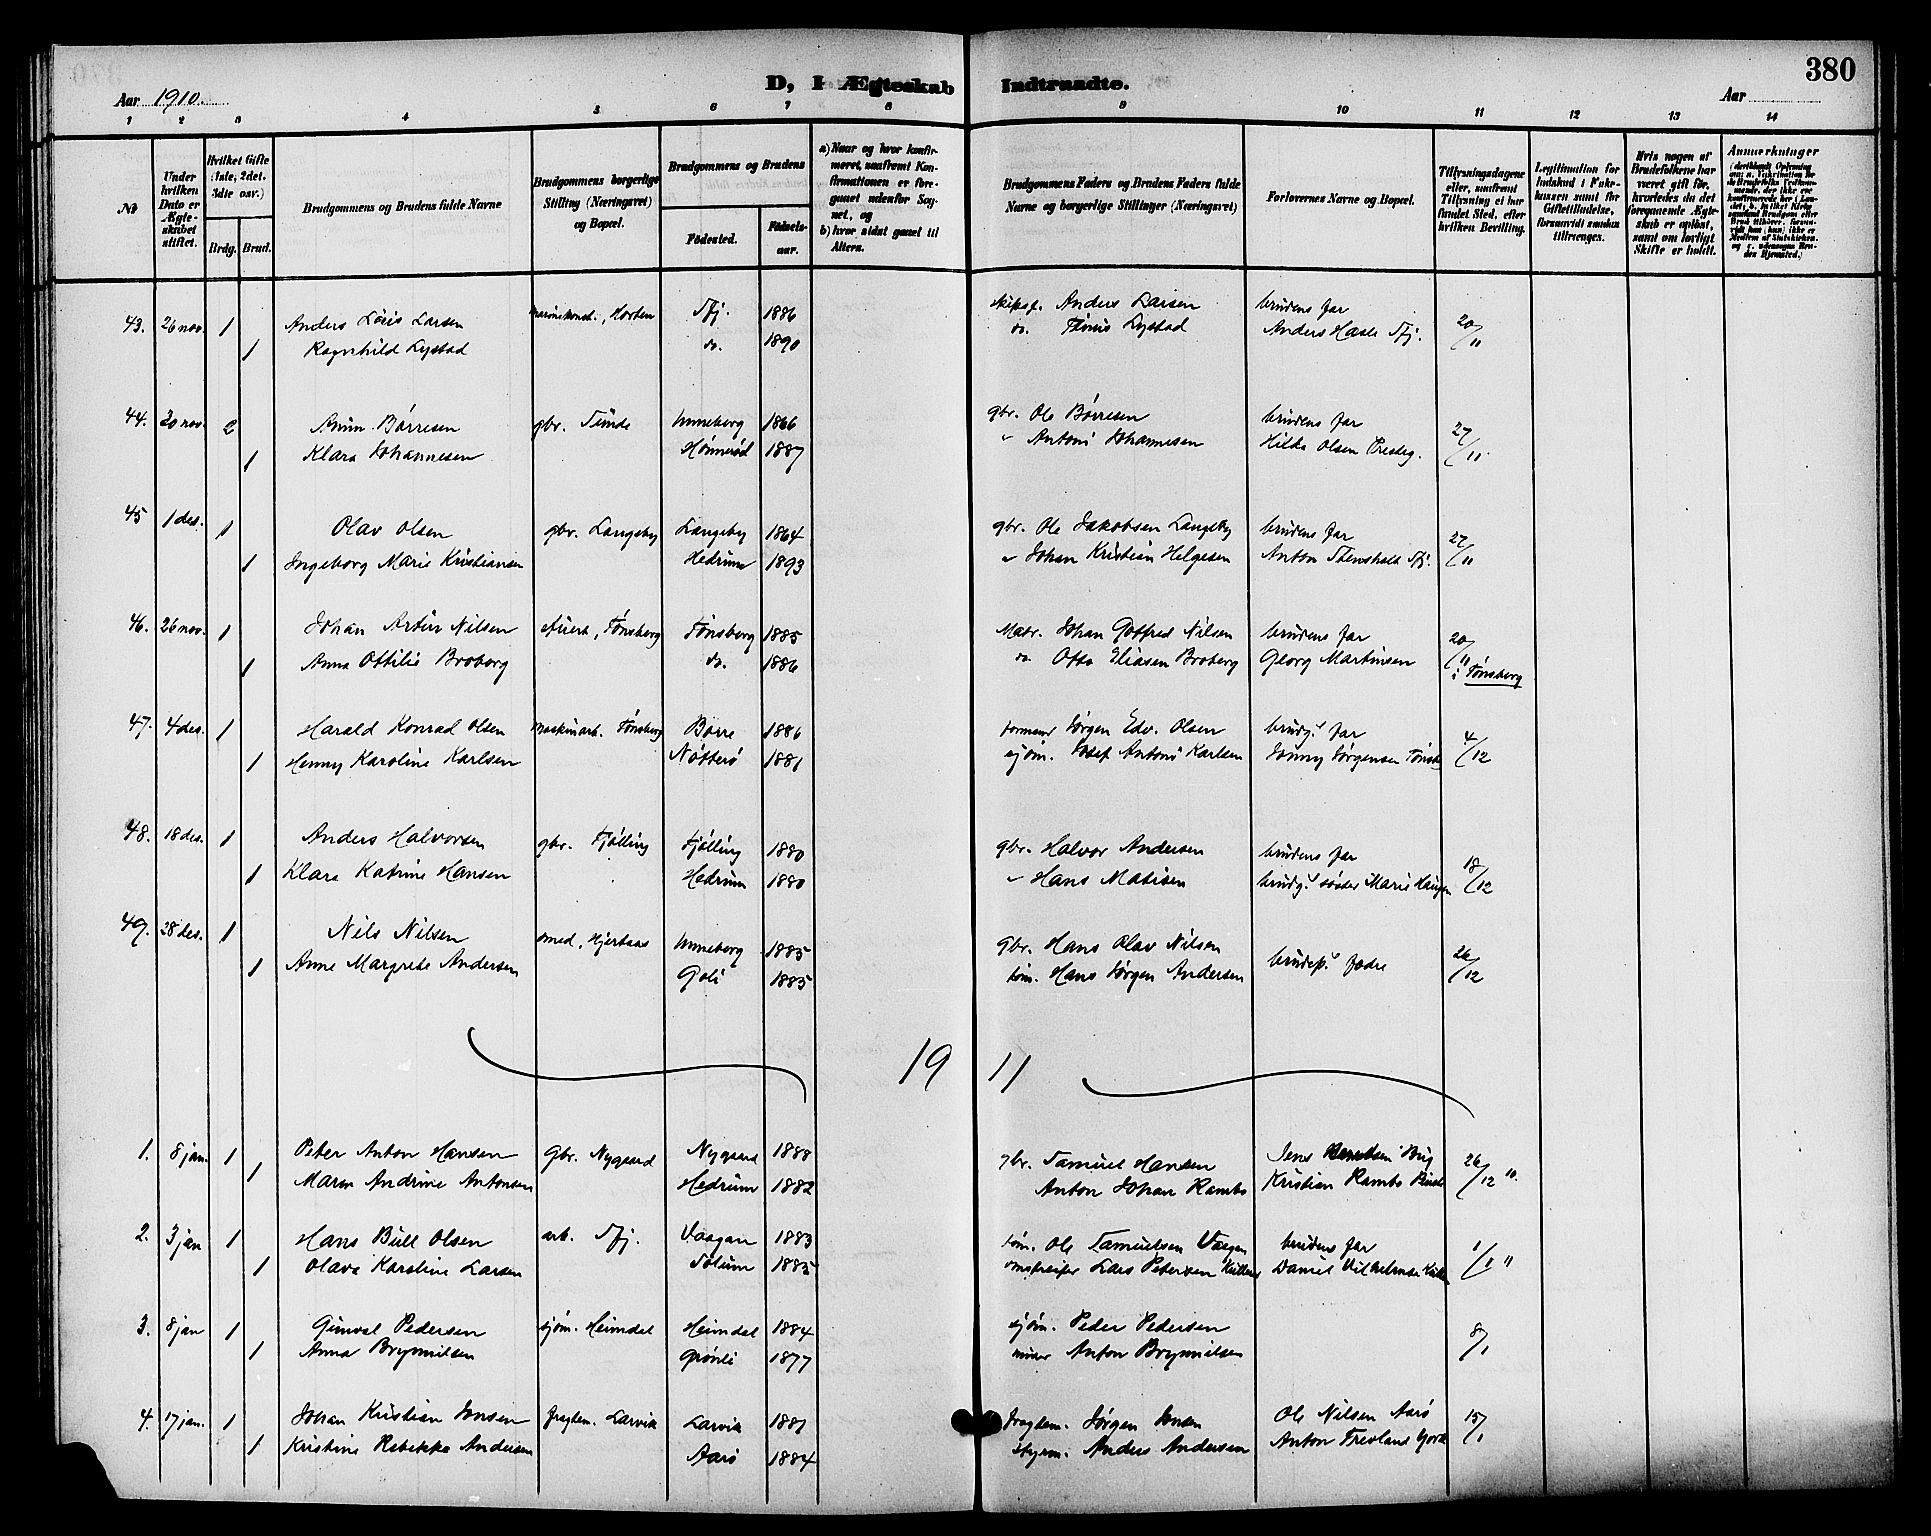 380
D, I Ægteskab Indtraadte.
Aar 1910.
Aar
1 2 3 4 5 6 7 8 9 10 11 12 13 14
No
Under hvilken Dato er Ægteskabet stiftet.
Hvilket Gifte (1ste, 2det, 3die osv.)
Brdg. Brud.
Brudgommens og Brudens fulde Navne
Brudgommens borgerlige Stilling (Næringsvei) og Bopæl.
Brudgommens og Brudens
Fødested.
Fødselsaar.
a) Naar og hvor konfirmeret, saafremt Konfirmationen er foregaaet udenfor Sognet, og
b) hvor sidst gaaet til Alters.
Brudgommens Faders og Brudens Faders fulde Navne og borgerlige Stillinger (Næringsvei)
Forlovernes Navne og Bopæl.
Tillysningsdagene eller, saafremt Tillysning ei har fundet Sted, efter hvilken Bevilling.
Legitimation for Indskud i Fakrkassen samt for Giftetilladelse, forsaavidt saadan tiltrænges.
Hvis nogen af Brudefolkene har været gift før, hvorledes da det foregaaende Ægteskab er opløst, samt om lovligt Skifte er holdt.
Anmærkninger
43. 26 nov. 1 Anders Loris Larsen Horten Sfj. 1886 Anders Larsen brudens far 20/11
1 Ragnhild Lystad do. 1890 do. Tønis Lystad Anders Hasle Sfj.
44. 30 nov. 2 Anun Børresen gbr. Sünde Unneberg 1866 gbr. Ole Børresen brudens far 27/11
1 Klara Johannesen Hønnerød 1887 " Antoni Johannesen Hilda Olsen Presteg.
45 1 des. 1 Olav Olsen gbr. Langeby Langeby 1864 gbr. Ole Jakobsen Langeby brudens far 27/11
1 Ingeborg Marie Kristiansen Hedrum 1893 " Johan Kristian Helgesen Anton Stensholt Sfj.
46. 26 nov. 1 Johan Artur Nilsen Tønsberg Tønsberg 1885 Johan Gotfred Nilsen brudens far 20/11
1 Anna Ottilie Broberg do. 1886 do. Otto Eliasen Broberg Georg Martinsen i Tønsberg
47. 4 des. 1 Harald Konrad Olsen maskinarb. Tønsberg Borre 1886 formand Jørgen Edv. Olsen brudg.s far 4/12
1 Henny Karoline Karlsen Nøtterø 1881 sjøm. Josef Antoni Karlsen Jonny Jørgensen Tønsb
48. 18 des. 1 Anders Halvorsen gbr. Tjølling Tjølling 1880 gbr. Halvor Andersen brudens far 18/12
1 Klara Katrine Hansen Hedrum 1880 " Hans Matisen brudg.s søster Marie Haugen
49. 28 des. 1 Nils Nilsen smed, Hjertaas Unneberg 1885 gbr. Hans Olav Nilsen brudep.s fedre 26/12
1 Anne Margrete Andersen Goli 1885 tøm. Hans Jørgen Andersen
1911
1. 8 jan. 1 Peter Anton Hansen gbr. Nygaard Nygaard 1888 gbr. Samuel Hansen Jens 26/12 10.
1 Maren Andrine Antonsen Hedrum 1882 Anton Johan Rambo Kristian Rambo
2. 3 jan 1 Hans Bull Olsen arb. Sfj. Vaagan 1883 tøm. Ole Samuelsen Vaagen brudens far 1/1 11
1 Olava Karoline Larsen Solum 1885 Lars Petersen Daniel Vilhelmsen
3. 8 jan 1 Gunval Pedersen sjøm. Heimdal Heimdal 1884 sjøm. Peder Pedersen 8/1
1 Anna Brynnilsen Grønli 1877 Anton Brynnilsen
4. 17 jan. 1 Johan Kristian Jonsen fragtem. Larvik Larvik 1881 fragtem. Jørgen Jonsen Ole Nilsen Aarø 15/1
1 Kristine Rebekka Andersen Aarø 1884 styrm. Anders Andersen Anton Tresland